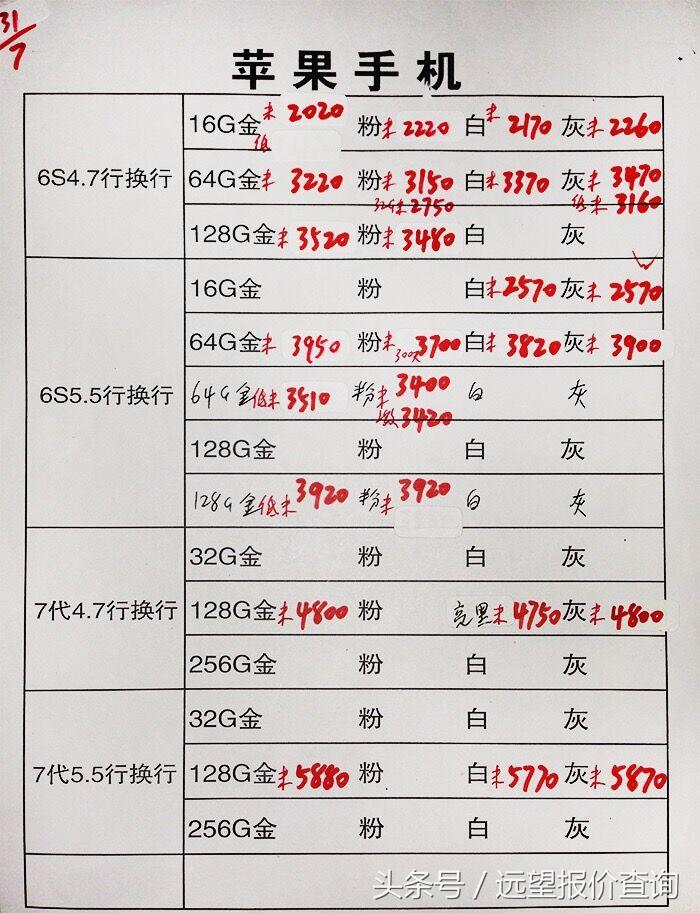 31/7
苹果手机
6S4.7行换行
16G金未2020 粉未2220 白未2170 灰未2260
低
64G金未3220 粉未3150 白未3370 灰未3470
32G未2750 低未3160
128G金未3520 粉未3480 白 灰
6S5.5行换行
16G金 粉 白未2570 灰未2570
64G金未3950 粉未3700 白未3820 灰未3900
300天
64G金低未3510 粉未3400 白 灰
激3420
128G金 粉 白 灰
128G金低未3920 粉未3920 白 灰
7代4.7行换行
32G金 粉 白 灰
128G金未4800 粉 亮黑未4750 灰未4800
256G金 粉 白 灰
7代5.5行换行
32G金 粉 白 灰
128G金未5880 粉 白未5770 灰未5870
256G金 粉 白 灰
头条号/远望报价查询